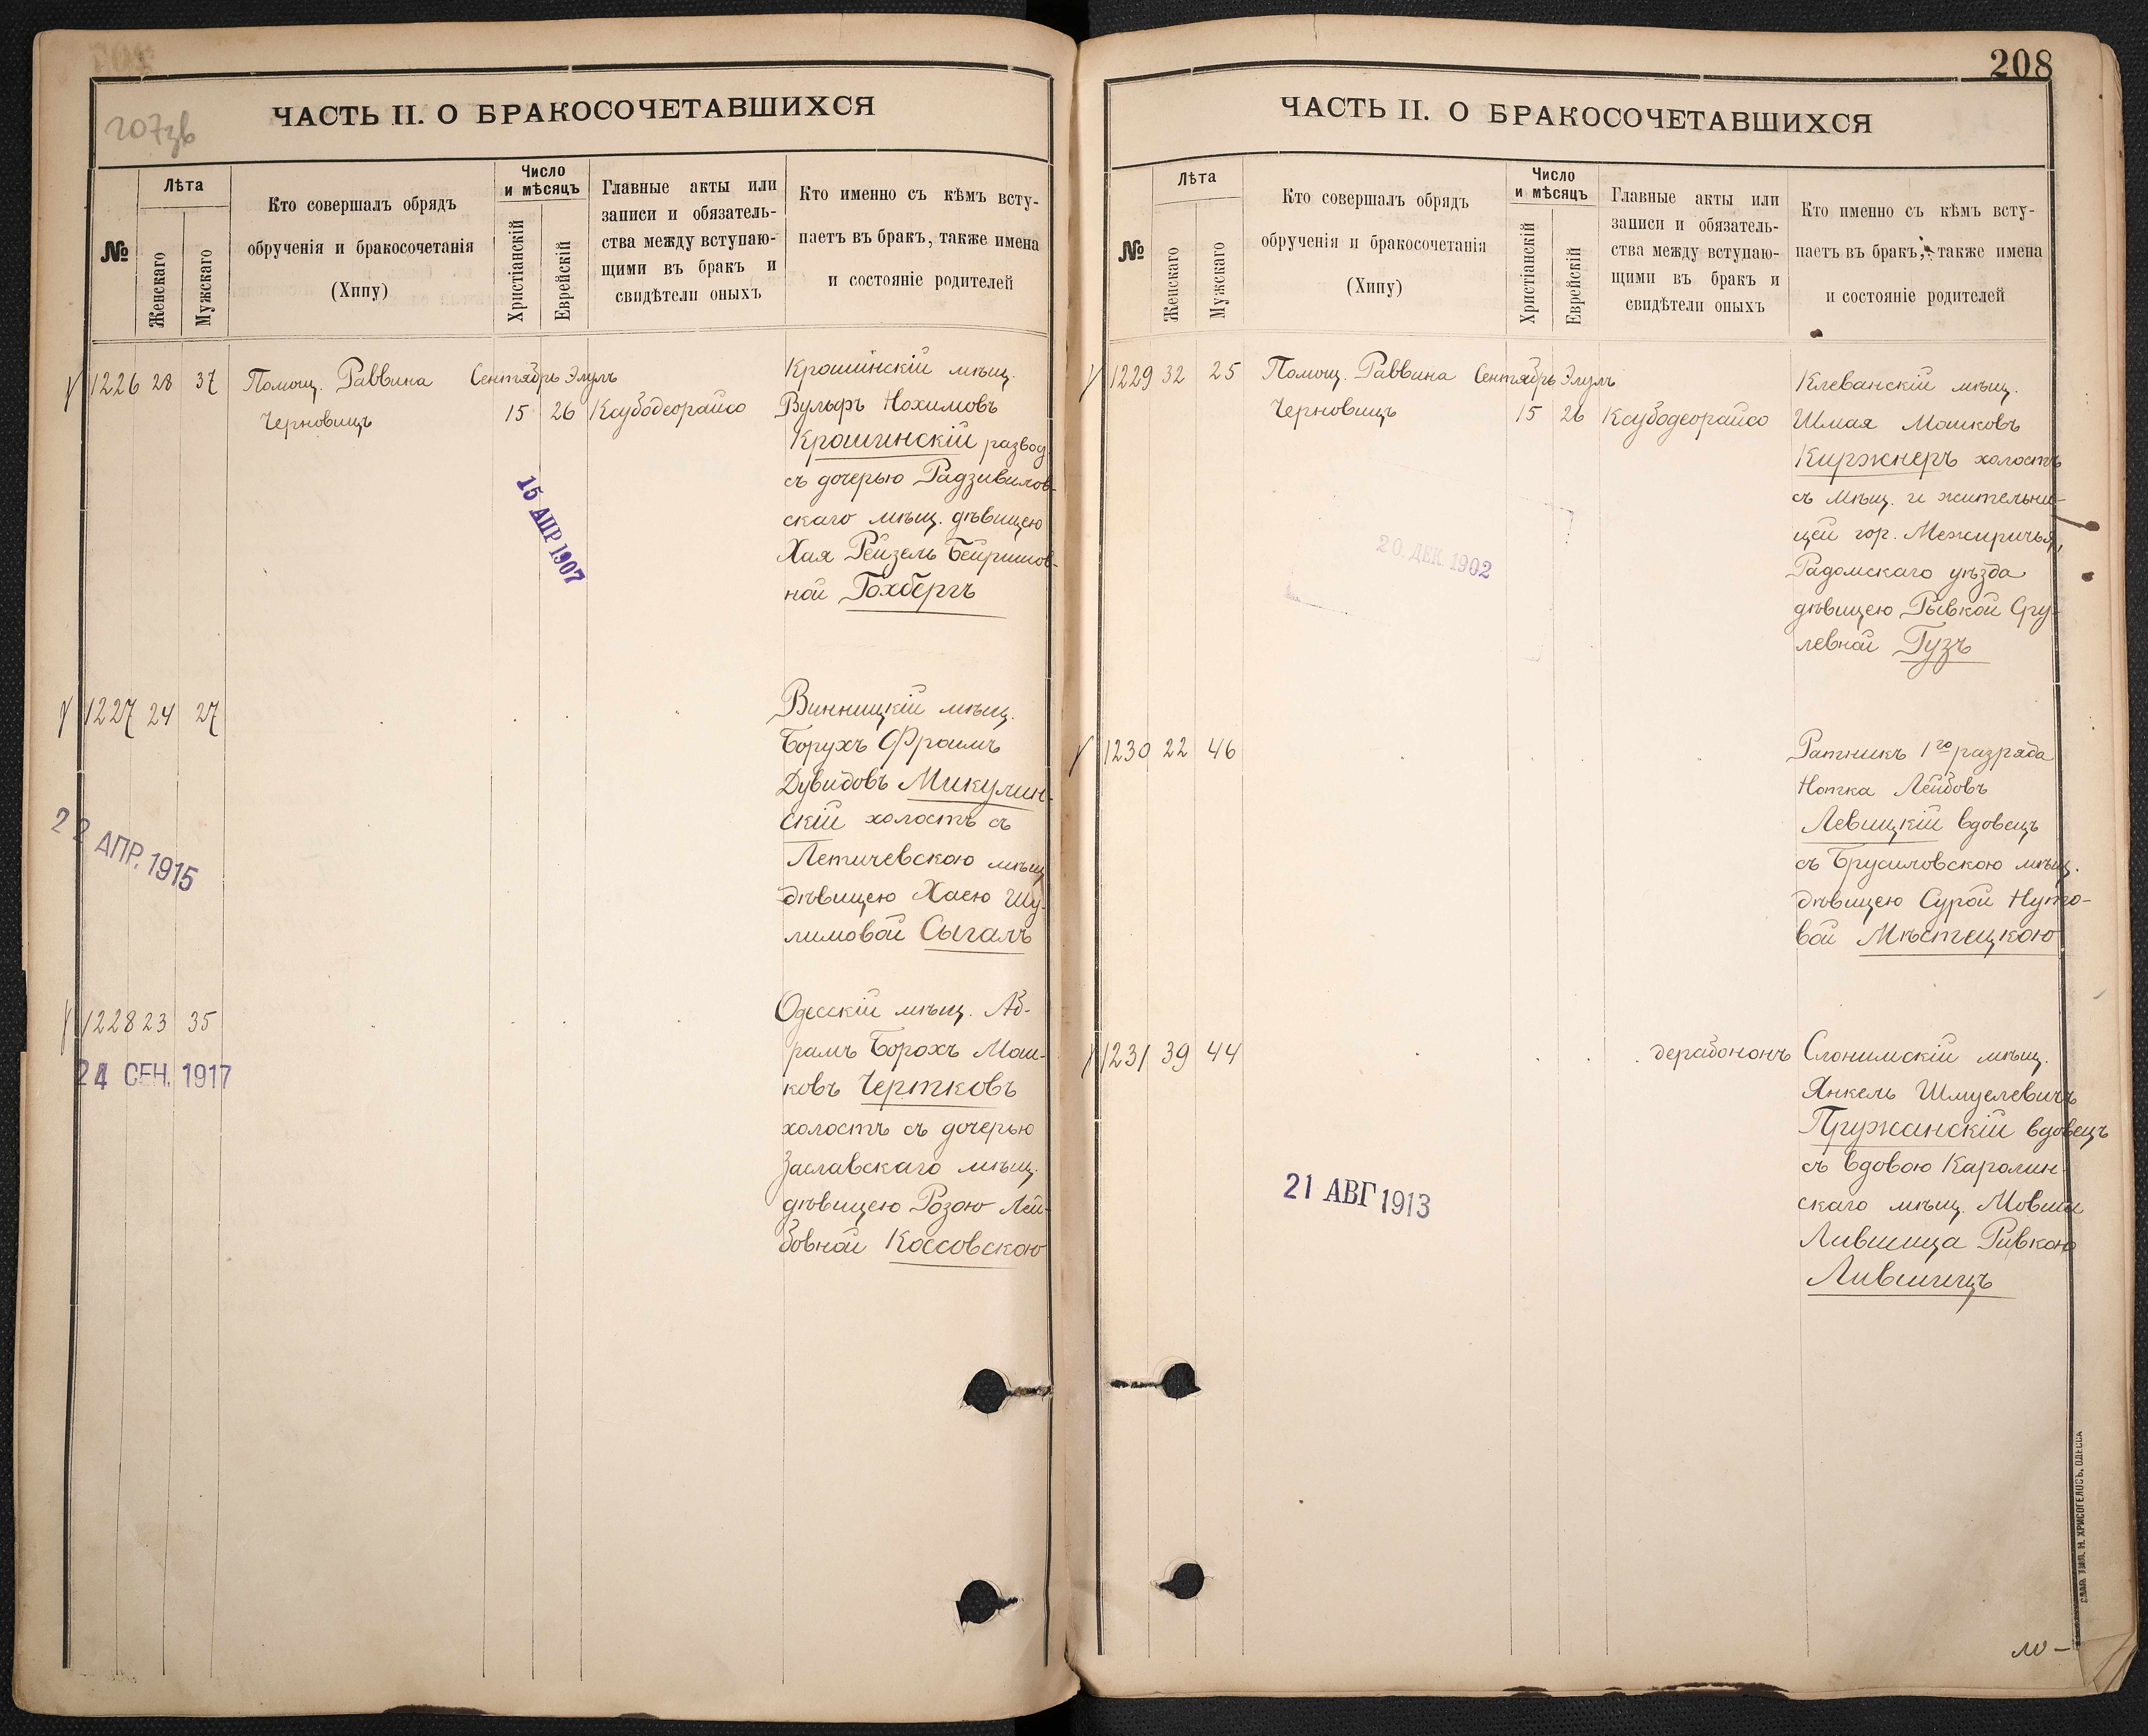 207зв
ЧАСТЬ II. О БРАКОСОЧЕТАВШИХСЯ
№
Лѣта
Женскаго
Мужскаго
Кто совершалъ обрядъ
обрученія и бракосочетанія
(Хипу)
Число
и мѣсяцъ
Христіанскій
Еврейскій
Главные акты или
записи и обязатель-
ства между вступаю-
щими въ бракъ и
свидѣтели оныхъ
Кто именно съ кѣмъ всту-
паетъ въ бракъ, также имена
и состояніе родителей
1226 28 37 Помощ. Раввина Сентябрь Элулъ
Черновицъ 15 26 Ксубодеорайсо
Крошинскій мѣщ.
Вульфъ Нохимовъ
Крошинскій развод
съ дочерью Радзивилов-
скаго мѣщ. дѣвицею
Хая Рейзель Бейришов-
ной Гохбергъ
15 АПР 1907
1227 24 27
Винницкій мѣщ.
Борухъ Фроимъ
Дувидовъ Микулин-
скій холостъ съ
Летичевскою мѣщ
дѣвицею Хаею Шу-
лимовой Сыгалъ
22 АПР. 1915
1228 23 35
Одесскій мѣщ. Аб-
рамъ Борохъ Мош-
ковъ Чертковъ
холостъ съ дочерью
Заславскаго мѣщ.
дѣвицею Розою Лей-
бовной Коссовскою
24 СЕН. 1917
208
ЧАСТЬ II. О БРАКОСОЧЕТАВШИХСЯ
№
Лѣта
Женскаго
Мужскаго
Кто совершалъ обрядъ
обрученія и бракосочетанія
(Хипу)
Число
и мѣсяцъ
Христіанскій
Еврейскій
Главные акты или
записи и обязатель-
ства между вступаю-
щими въ бракъ и
свидѣтели оныхъ
Кто именно съ кѣмъ всту-
паетъ въ бракъ, также имена
и состояніе родителей
1229 32 25 Помощ. Раввина Сентябрь Элулъ
Черновицъ 15 26 Ксубодеорайсо
Клеванскій мѣщ.
Шмая Мошковъ
Киржнеръ холостъ
съ мѣщ. и жительни-
цей гор. Межиричья,
Радомскаго уѣзда
дѣвицею Рывкой Сру-
левной Гузъ
20. ДЕК. 1902
1230 22 46
Ратникъ 1го разряда
Нотка Лейбовъ
Левицкій вдовецъ
съ Брусиловскою мѣщ.
дѣвицею Сурой Нуто-
вой Мѣстецкою
1231 39 44 дерабононъ
Слонимскій мѣщ.
Янкель Шмуелевичъ
Пружанскій вдовецъ
съ вдовою Каролин-
скаго мѣщ. Мовши
Лившица Ривкою
Лившицъ
21 АВГ 1913
СЛАВ. ТИП. Н. ХРИСОГЕЛОСЪ, ОДЕССА